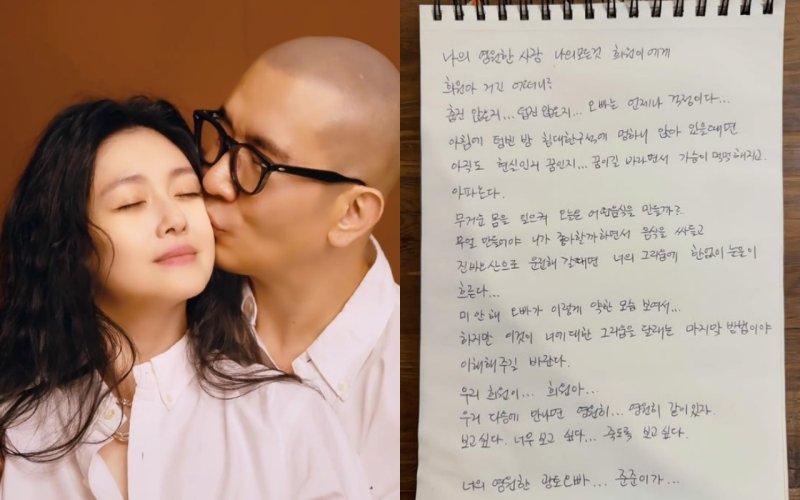 나의 영원한 사랑 나의모든것 희원이에게
희원아 거긴 어떠니?
춥진 않은지... 덥진 않은지... 오빠는 언제나 걱정이다...
아침에 텅빈 방 침대한구석에 멍하니 앉아 있을때면
아직도 현실인지 꿈인지... 꿈이길 바라면서 가슴이 먹먹해지고
아파온다.
무거운 몸을 일으켜 오늘은 어떤음식을 만들까?
무얼 만들어야 네가 좋아할까하면서 음식을 싸들고
진바오산으로 운전해 갈때면 너의 그리움에 한없이 눈물이
흐른다...
미안해 오빠가 이렇게 약한 모습 보여서...
하지만 이것이 너에대한 그리움을 달래는 마지막 방법이야
이해해주길 바란다.
우리 희원이... 희원아...
우리 다음에 만나면 영원히... 영원히 같이있자.
보고싶다. 너무 보고 싶다... 죽도록 보고싶다.
너의 영원한 광토오빠... 준준이가...